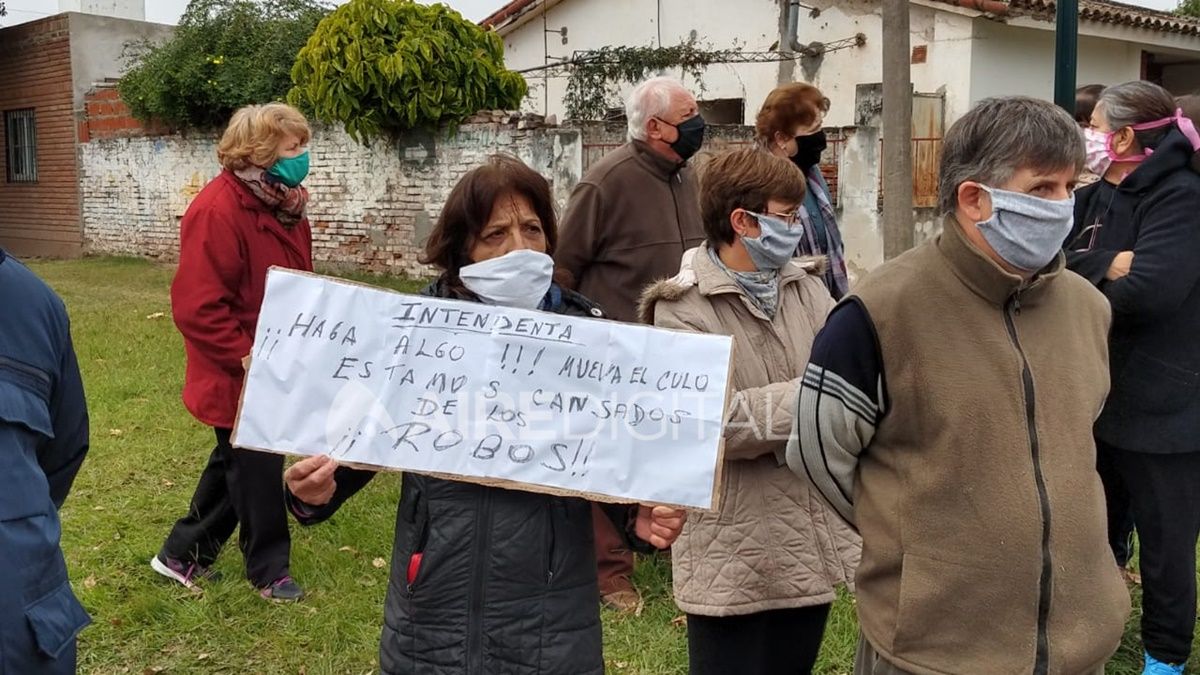 INTENDENTA
¡¡HAGA ALGO !!! MUEVA EL CULO
ESTAMOS CANSADOS
DE LOS
¡¡ROBOS!!
AIREDIGITAL